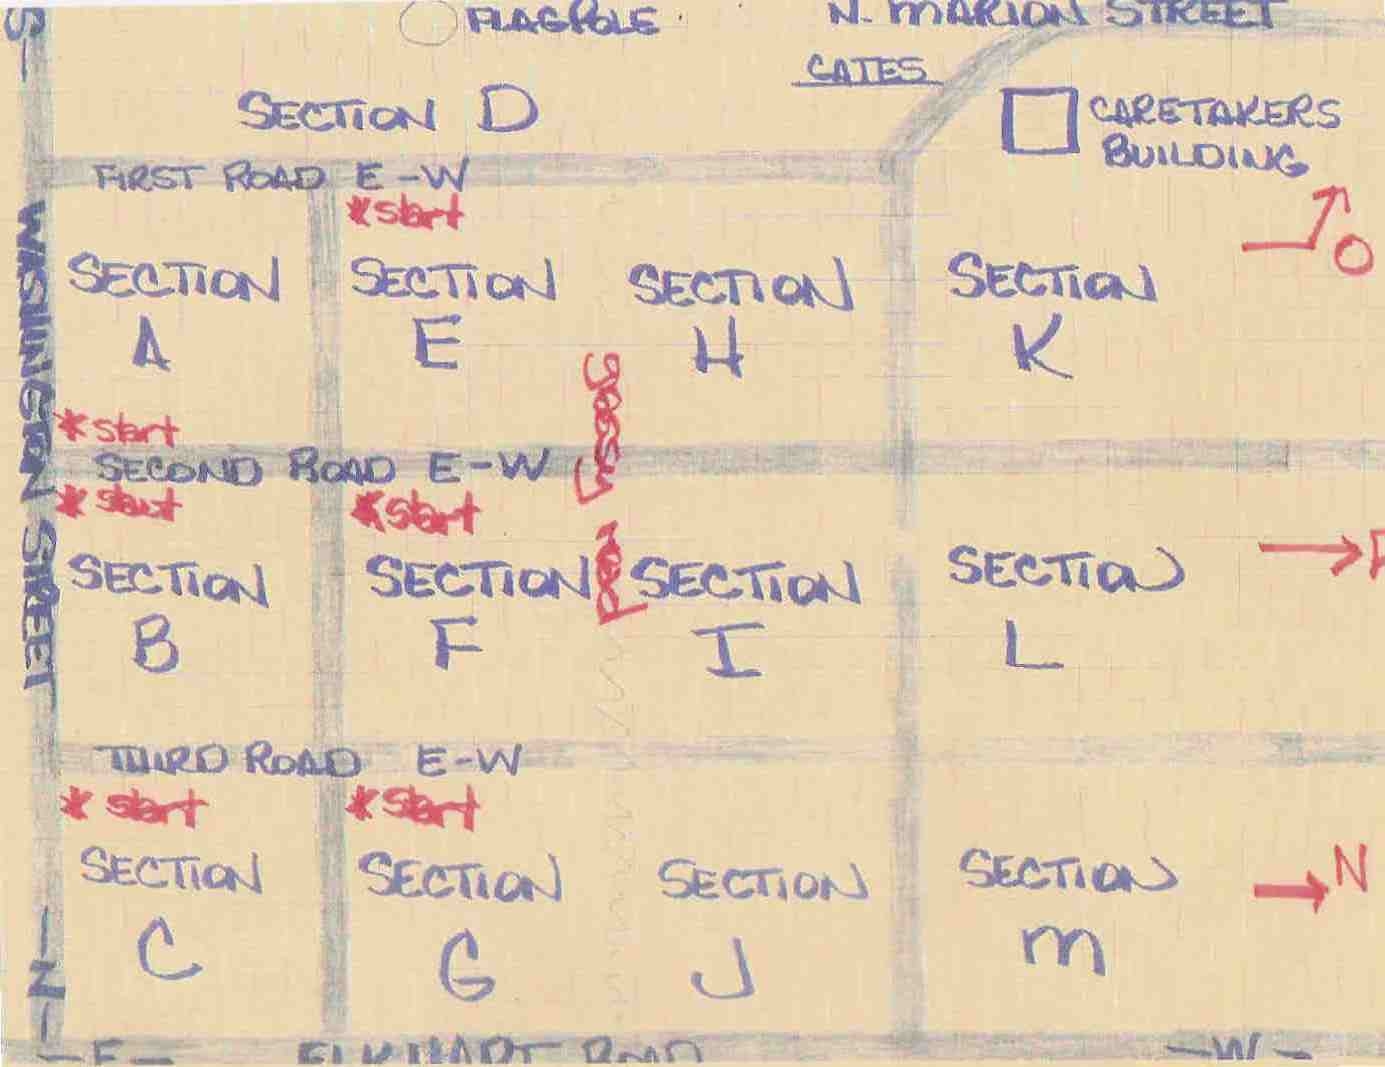 FLAGPOLE
N. MARION STREET
GATES
SECTION D
CARETAKERS
BUILDING
FIRST ROAD E-W
*start
O
SECTION
A
SECTION
E
SECTION
H
SECTION
K
*start
SECOND ROAD E-W
*start
*start
grassy road
SECTION
B
SECTION
F
SECTION
I
SECTION
L
THIRD ROAD E-W
*start
*start
SECTION
C
SECTION
G
SECTION
J
SECTION
M
N
WASHINGTON STREET
-S-
-N-
-E-
ELKHART ROAD
-W-